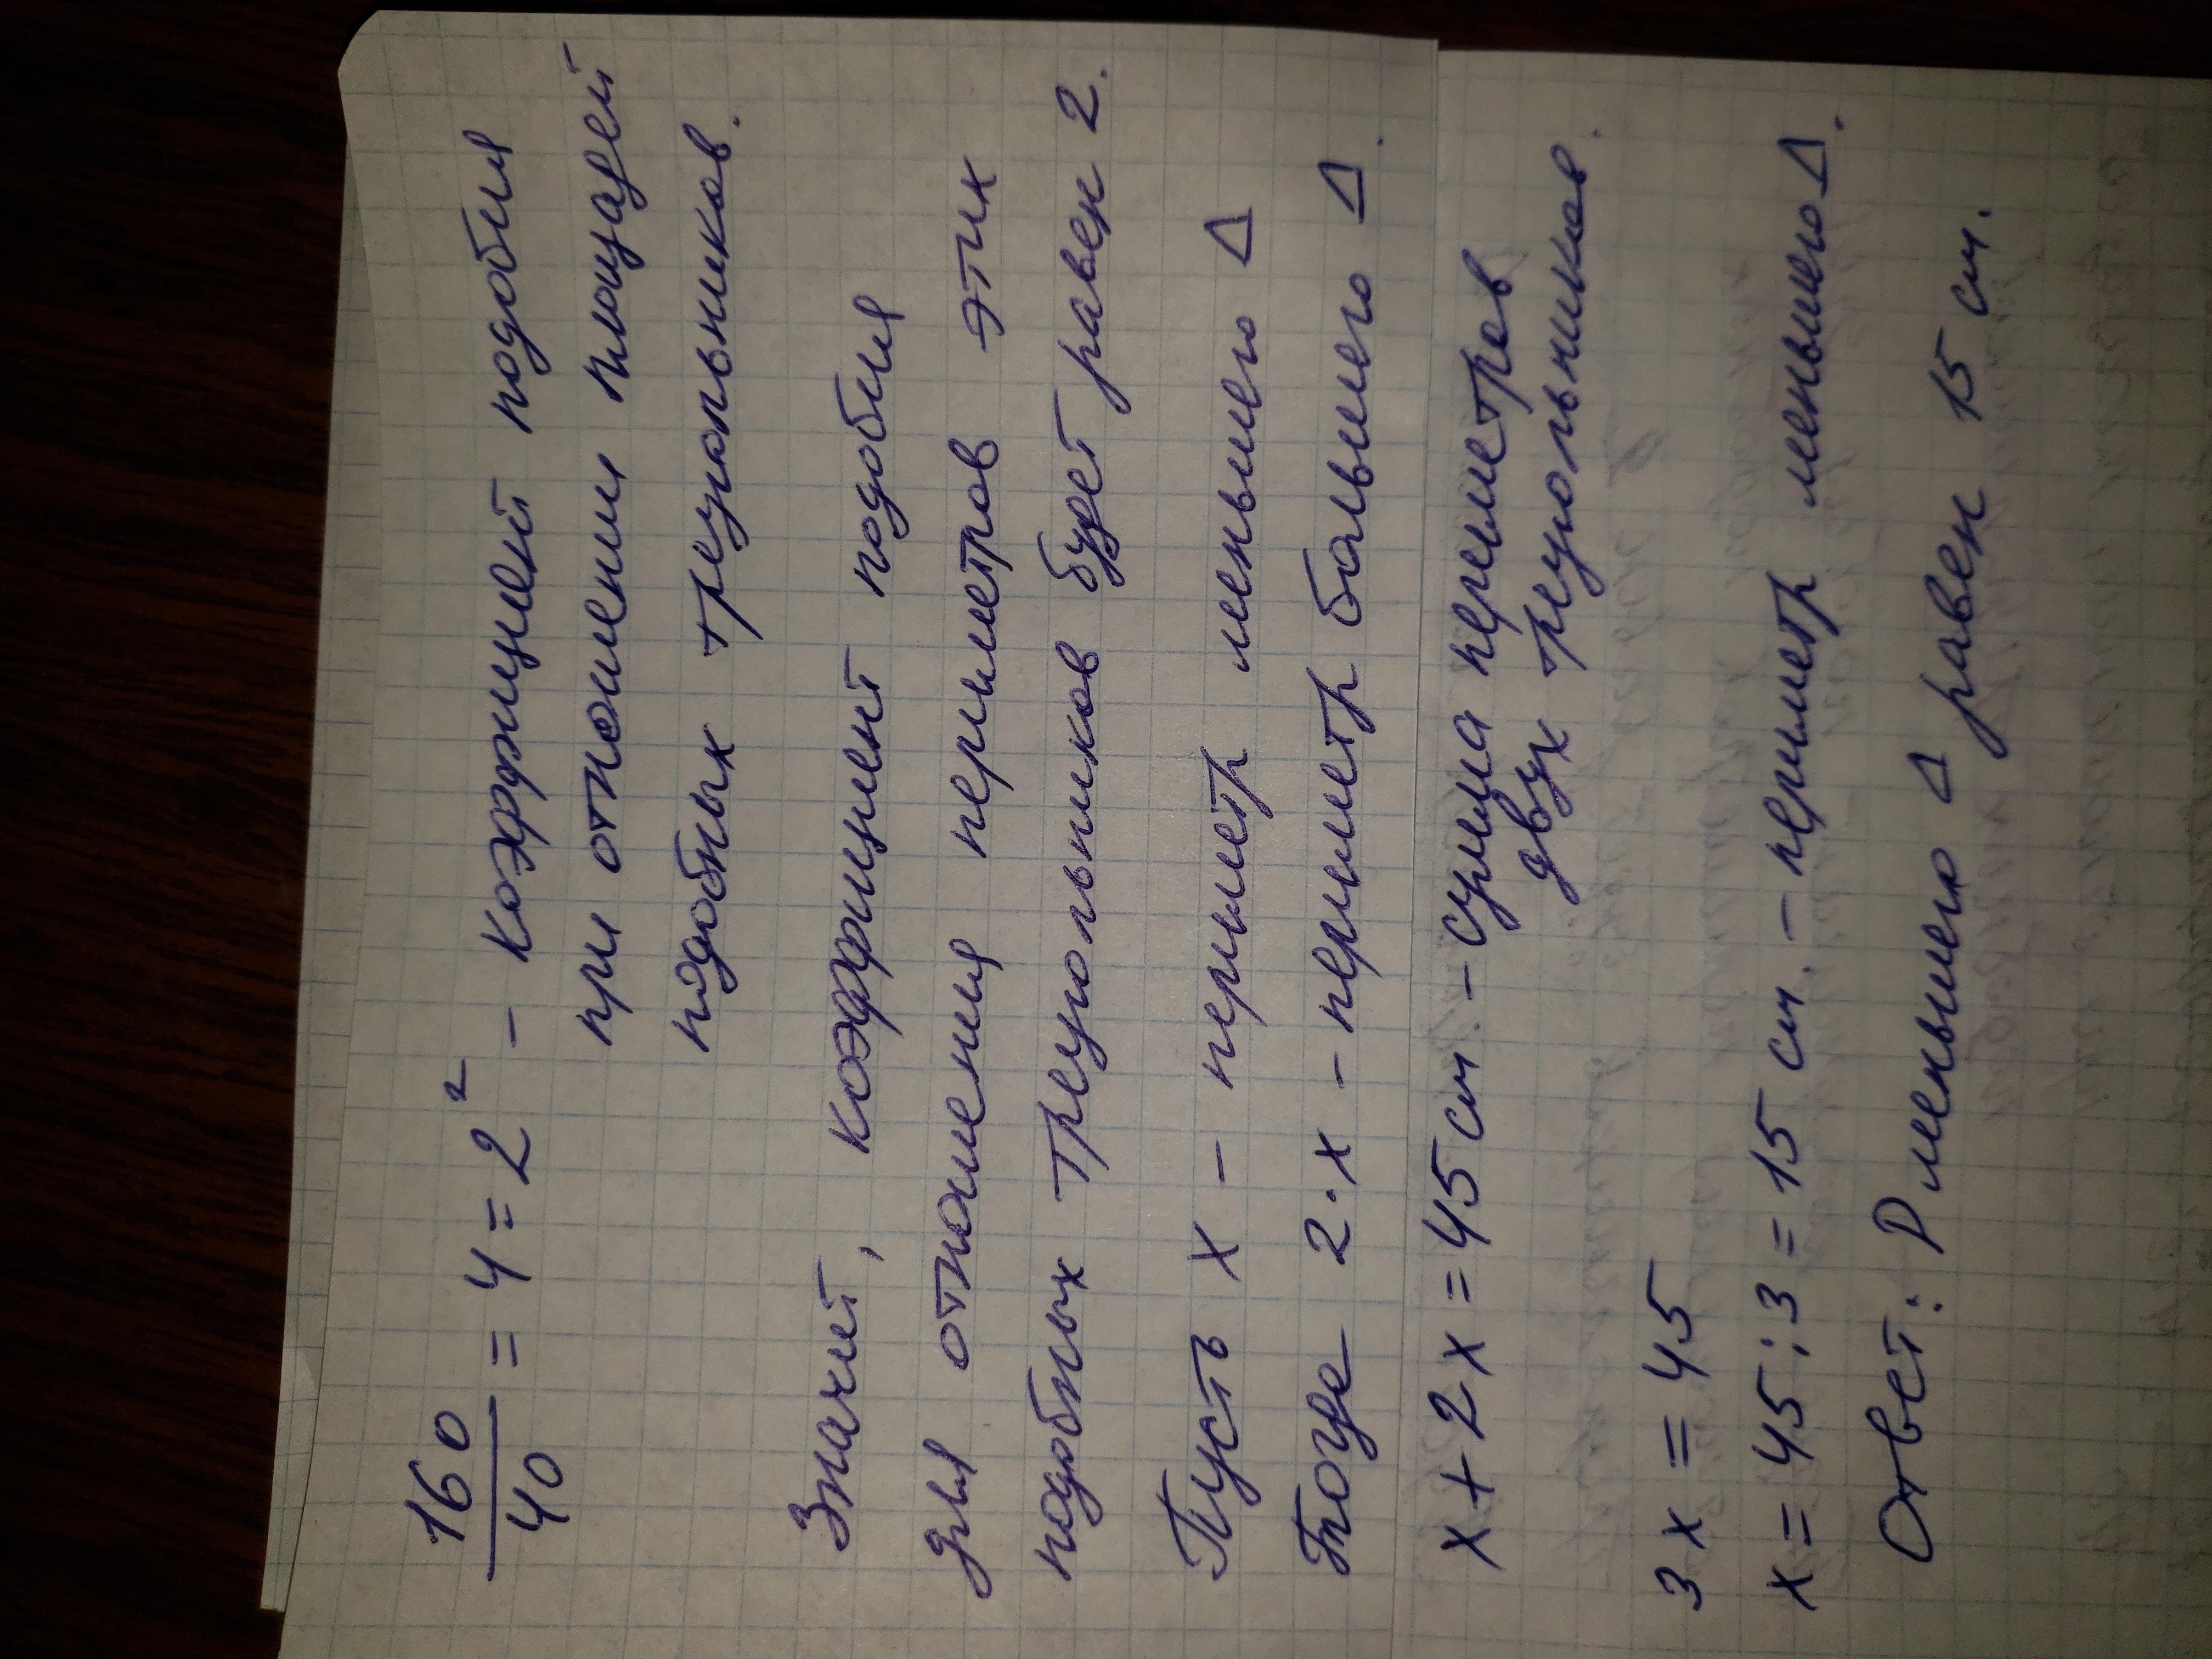 160
40
= 4 = 2² – коэффициент подобия
при отношении площадей
подобных треугольников.
Значит, коэффициент подобия
для отношения периметров этих
подобных треугольников будет равен 2.
Пусть х – периметр меньшего Δ
Тогда 2·х – периметр большего Δ.
х + 2х = 45 см – сумма периметров
двух треугольников.
3х = 45
х = 45 : 3 = 15 см. – периметр меньшего Δ.
Ответ: Р меньшего Δ равен 15 см.